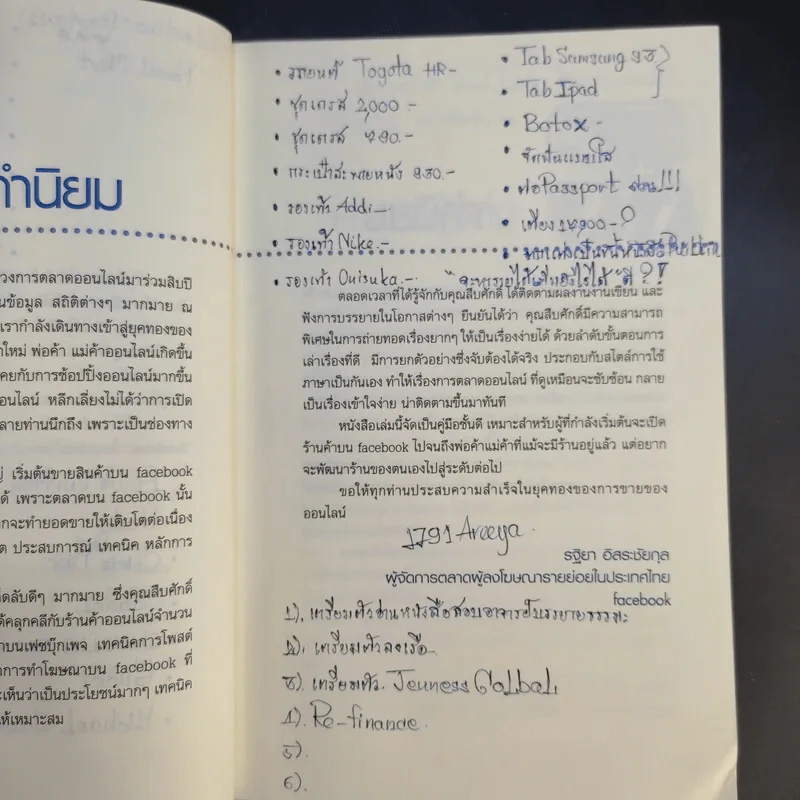 คำนิยม
วงการตลาดออนไลน์มาร่วมสิบปี
นข้อมูล สถิติต่างๆ มากมาย ณ
เรากำลังเดินทางเข้าสู่ยุคทองของ
าใหม่ พ่อค้า แม่ค้าออนไลน์เกิดขึ้น
คยกับการช้อปปิ้งออนไลน์มากขึ้น
อนไลน์ หลีกเลี่ยงไม่ได้ว่าการเปิด
ลายท่านนึกถึง เพราะเป็นช่องทาง
ญ่ เริ่มต้นขายสินค้าบน facebook
ด้ เพราะตลาดบน facebook นั้น
กจะทำยอดขายให้เติบโตต่อเนื่อง
ต ประสบการณ์ เทคนิค หลักการ
ล็ดลับดีๆ มากมาย ซึ่งคุณสืบศักดิ์
ด้คลุกคลีกับร้านค้าออนไลน์จำนวน
าบนเฟซบุ๊กเพจ เทคนิคการโพสต์
าการทำโฆษณาบน facebook ที่
ะเห็นว่าเป็นประโยชน์มากๆ เทคนิค
ห้เหมาะสม
• รถยนต์ Toyota HR-
• ชุดเดรส 2,000.-
• ชุดเดรส 790.-
• กระเป๋าสะพายหนัง 930.-
• รองเท้า Addi-
• รองเท้า Nike.-
• รองเท้า Onisuka.-
• Tab Samsung
• Tab Ipad
• Botox-
• จัดฟันแบบใส
• ต่อ Passport ด่วน!!!
• เตียง
ตลอดเวลาที่ได้รู้จักกับคุณสืบศักดิ์ ได้ติดตามผลงานงานเขียน และ
ฟังการบรรยายในโอกาสต่างๆ ยืนยันได้ว่า คุณสืบศักดิ์มีความสามารถ
พิเศษในการถ่ายทอดเรื่องยากๆ ให้เป็นเรื่องง่ายได้ ด้วยลำดับขั้นตอนการ
เล่าเรื่องที่ดี มีการยกตัวอย่างซึ่งจับต้องได้จริง ประกอบกับสไตล์การใช้
ภาษาเป็นกันเอง ทำให้เรื่องการตลาดออนไลน์ ที่ดูเหมือนจะซับซ้อน กลาย
เป็นเรื่องเข้าใจง่าย น่าติดตามขึ้นมาทันที
หนังสือเล่มนี้จัดเป็นคู่มือชั้นดี เหมาะสำหรับผู้ที่กำลังเริ่มต้นจะเปิด
ร้านค้าบน facebook ไปจนถึงพ่อค้าแม่ค้าที่แม้จะมีร้านอยู่แล้ว แต่อยาก
จะพัฒนาร้านของตนเองไปสู่ระดับต่อไป
ขอให้ทุกท่านประสบความสำเร็จในยุคทองของการขายของ
ออนไลน์
1791 Areeya.
รฐิยา อิสระชัยกุล
ผู้จัดการตลาดผู้ลงโฆษณารายย่อยในประเทศไทย
facebook
1). เตรียมตัวอ่านหนังสือสอบอาจารย์บรรยายธรรมะ
2). เตรียมตัวลงเรือ
3). เตรียมตัว. Jeuness Golbal,
4). Re-finance.
5).
6).